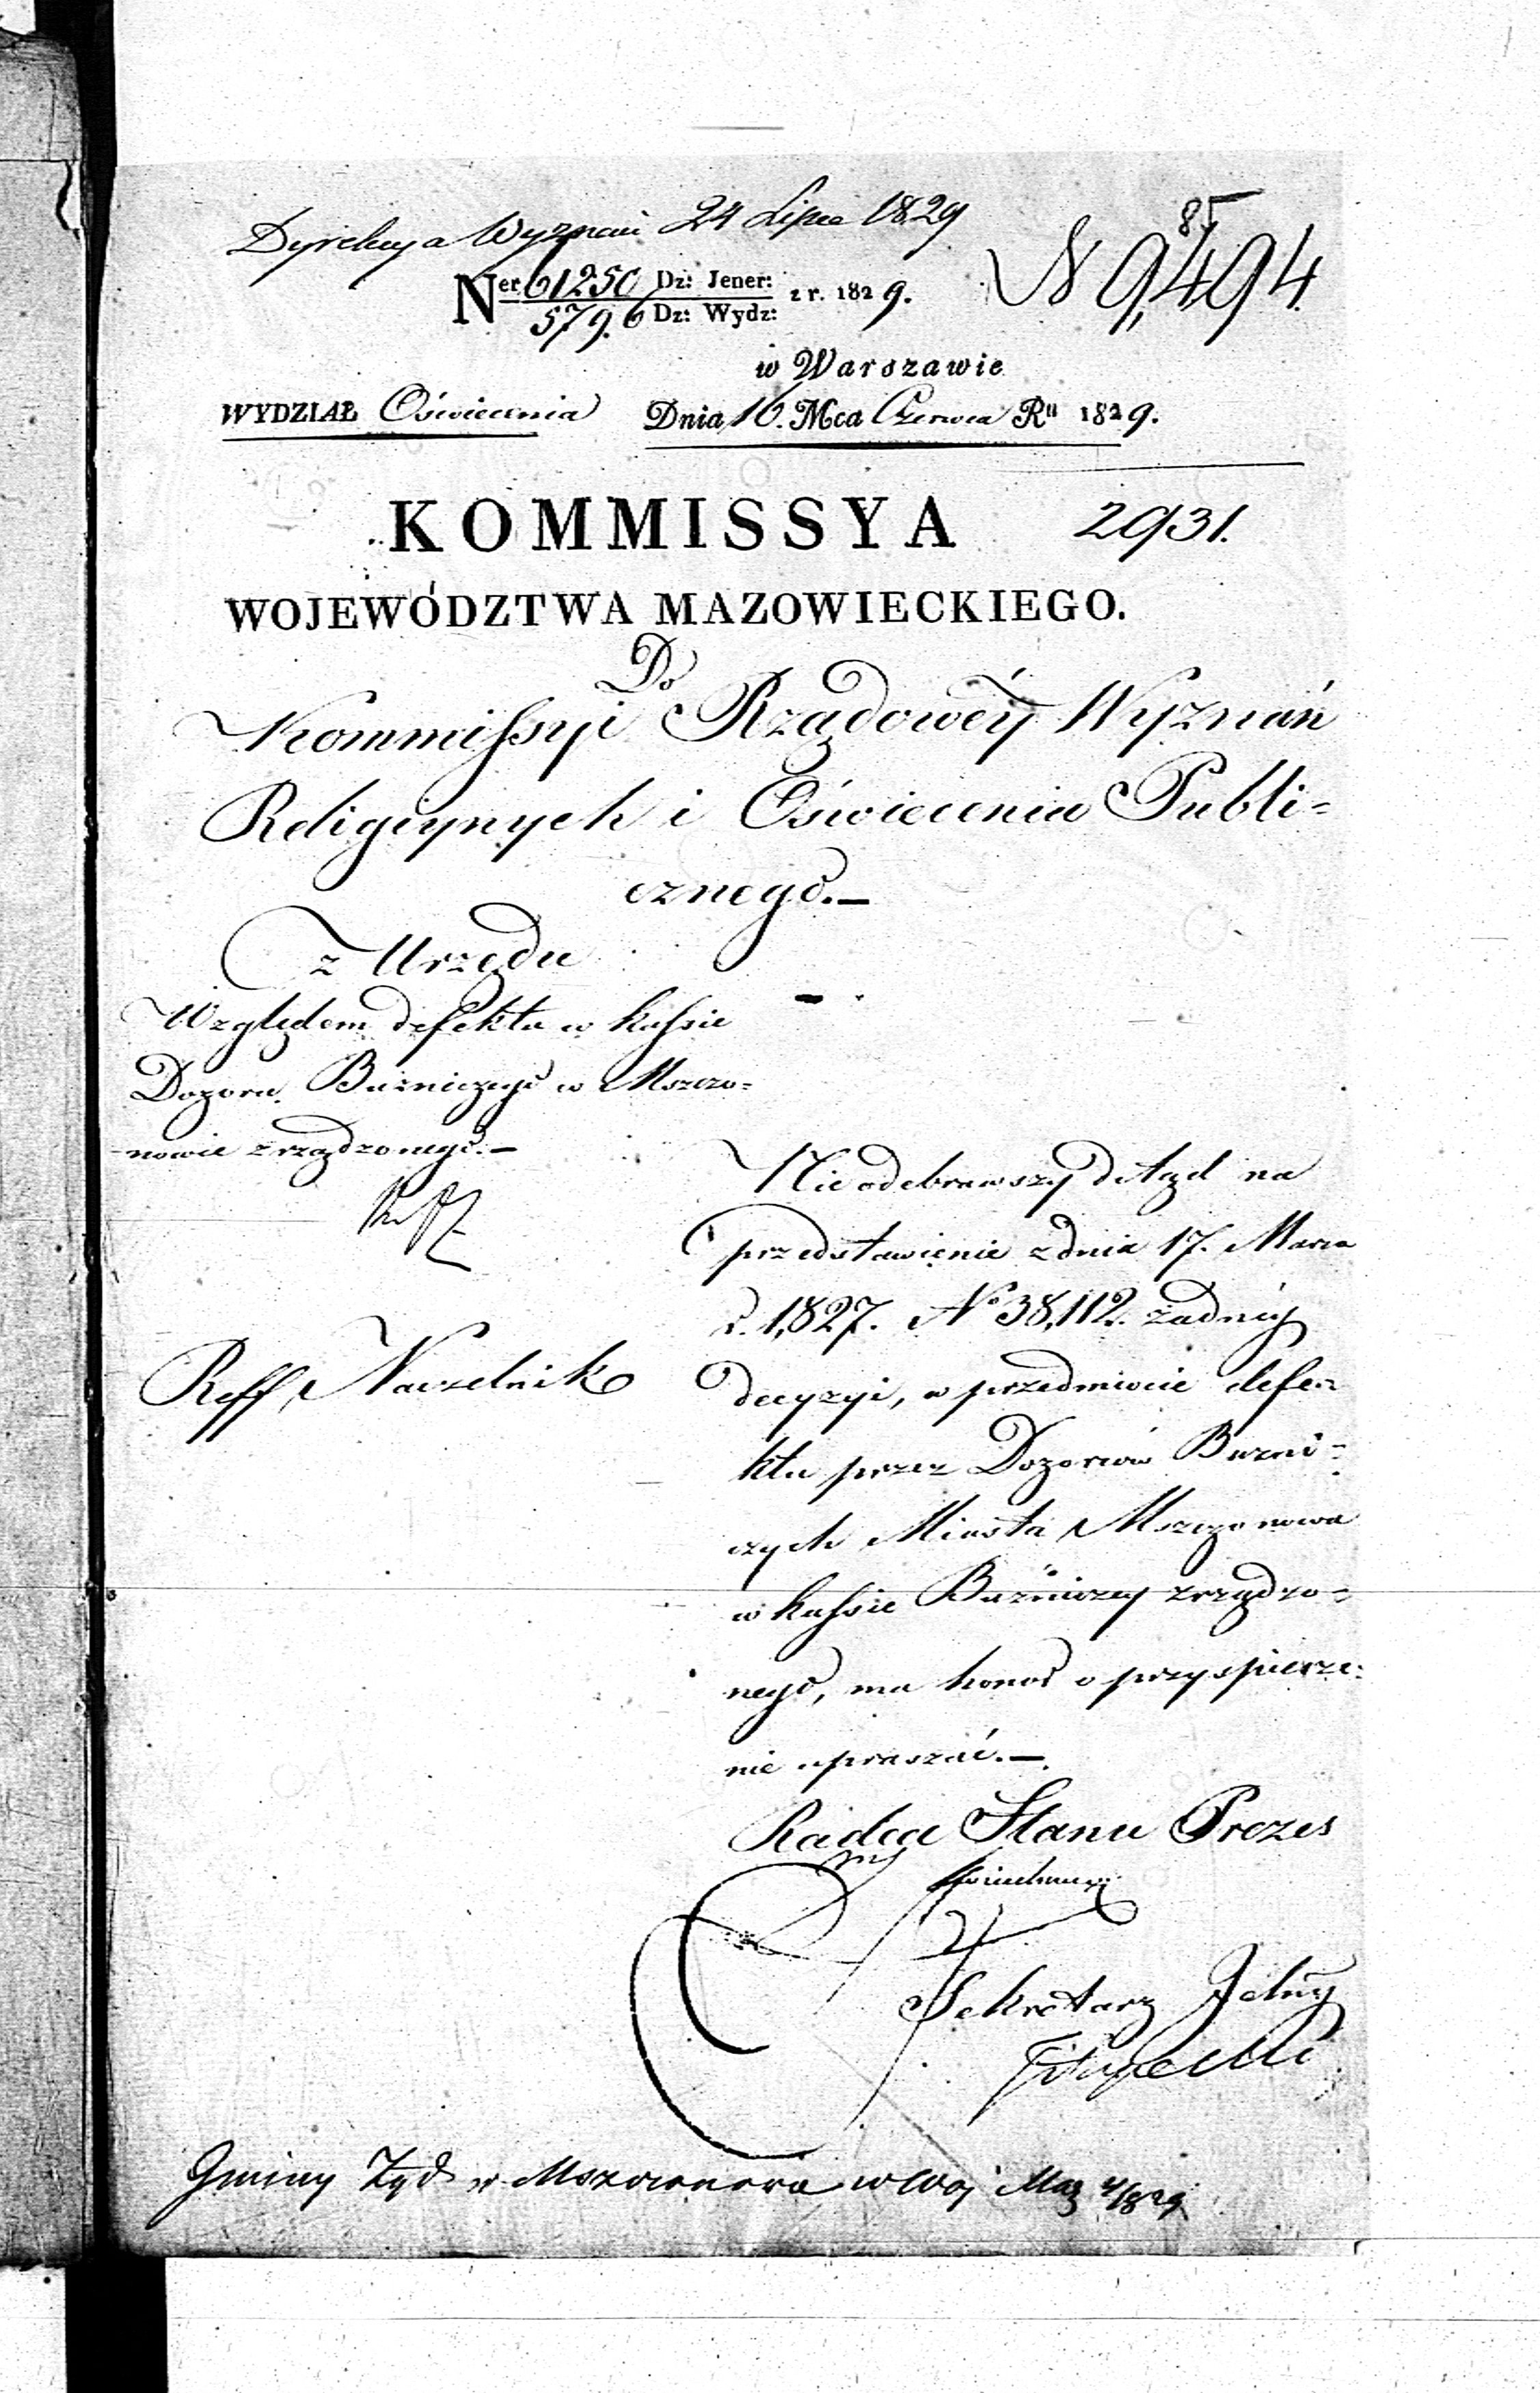 Dyrekcya Wyznań 24 Lipca 1829
85
Ner 61250 Dz: Jener: z r. 1829.
5796 Dz: Wydz:
N 9,494
w Warszawie
WYDZIAŁ Oświecenia Dnia 16. Mca Czerwca Ru 1829.
KOMMISSYA 2931.
WOJEWÓDZTWA MAZOWIECKIEGO.
Do
Kommissyi Rządowéy Wyznań
Religiynych i Oświecenia Publi=
cznego.—
z Urzędu
Względem defektu w kassie
Dozoru Bużniczego w Mszczo=
nowie zrządzonego.—
Reff, Naczelnik
Nie odebrawszy dotąd na
przedstawienie z dnia 17. Marca
r. 1,827. No 38,112. żadnéy
decyzyi, w przedmiocie defe=
ktu przez Dozorców Buzni=
czych Miasta Mszczonowa
w kassie Bużniczey zrządzo=
nego, ma honor o przyspiesze=
nie upraszać.—
Radca Stanu Prezes
Sekretarz Jelny
Filipecki
Gminy Żyd w Mszczonowa w Woj Maz 4/829